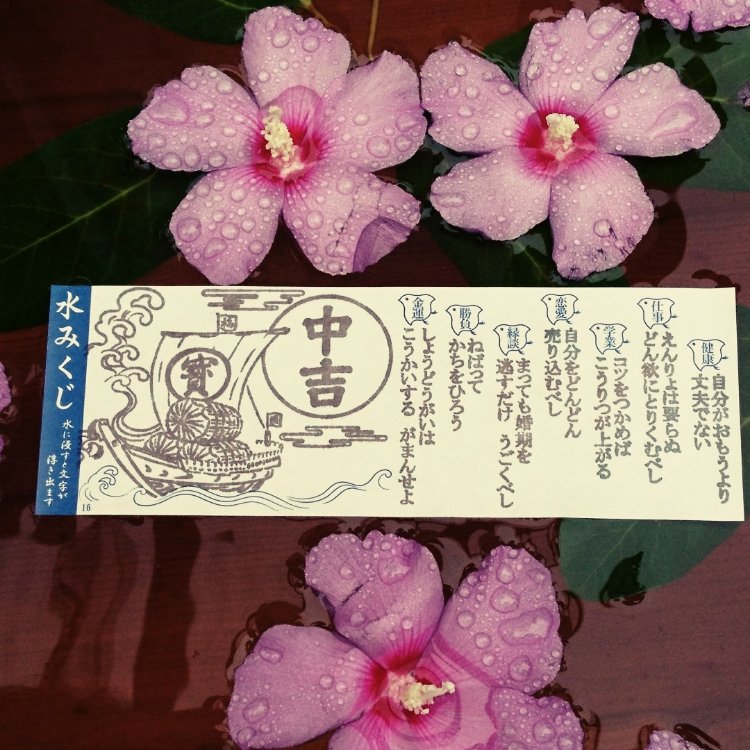 健康
自分がおもうより
丈夫でない
仕事
えんりょは要らぬ
どん欲にとりくむべし
学業
コツをつかめば
こうりつが上がる
恋愛
自分をどんどん
売り込むべし
縁談
まっても婚期を
逃すだけ うごくべし
勝負
ねばって
かちをひろう
金運
しょうどうがいは
こうかいする がまんせよ
中吉
寳
水みくじ
水に浸すと文字が
浮き出ます
16